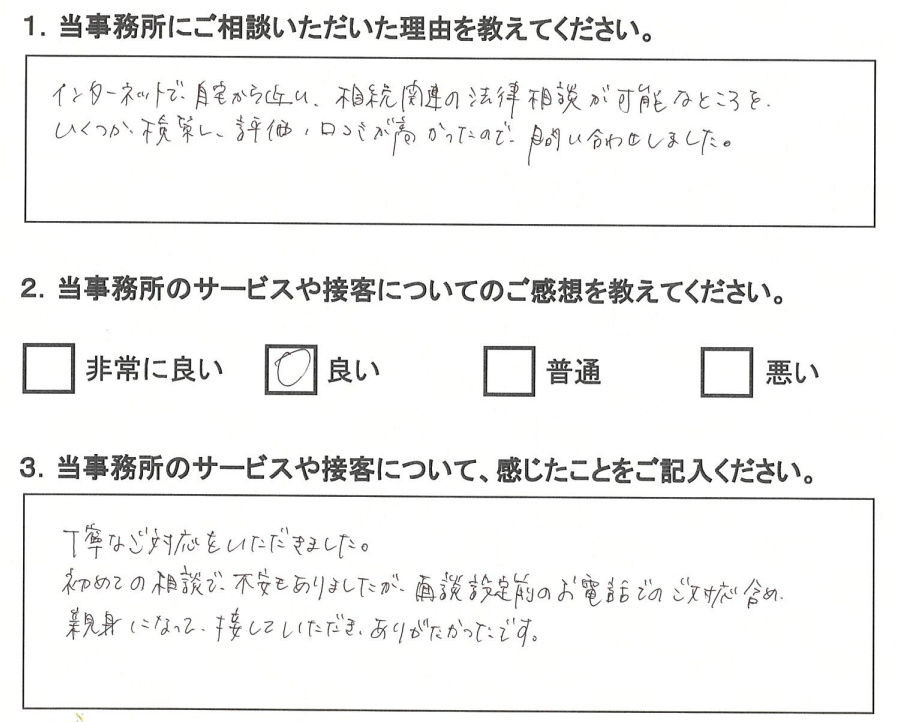 1. 当事務所にご相談いただいた理由を教えてください。
インターネットで、自宅から近い、相続関連の法律相談が可能なところを、
いくつか、検索し、評価、口コミが高かったので、問い合わせしました。
2. 当事務所のサービスや接客についてのご感想を教えてください。
非常に良い 良い 普通 悪い
3. 当事務所のサービスや接客について、感じたことをご記入ください。
丁寧なご対応をいただきました。
初めての相談で、不安もありましたが、面談設定前のお電話でのご対応含め、
親身になって、接していただき、ありがたかったです。